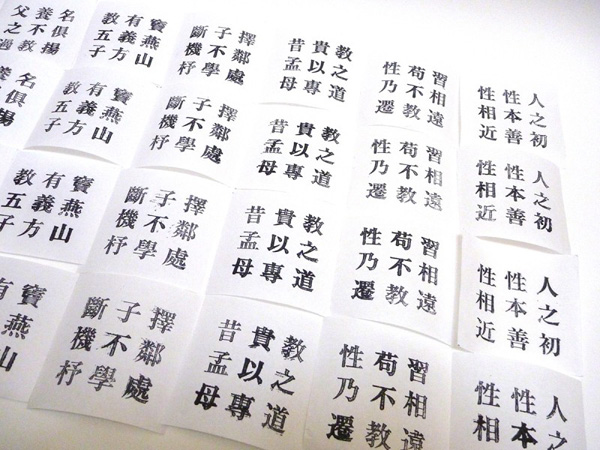 人之初
性本善
性相近
習相遠
苟不教
性乃遷
教之道
貴以專
昔孟母
擇鄰處
子不學
斷機杼
竇燕山
有義方
教五子
名俱揚
養不教
父之過
人之初
性本善
性相近
習相遠
苟不教
性乃遷
教之道
貴以專
昔孟母
擇鄰處
子不學
斷機杼
竇燕山
有義方
教五子
名俱揚
人之初
性本善
性相近
習相遠
苟不教
性乃遷
教之道
貴以專
昔孟母
擇鄰處
子不學
斷機杼
竇燕山
有義方
教五子
人之
性本
性相
習相遠
苟不教
性乃遷
教之道
貴以專
昔孟母
擇鄰處
子不學
斷機杼
竇燕山
有